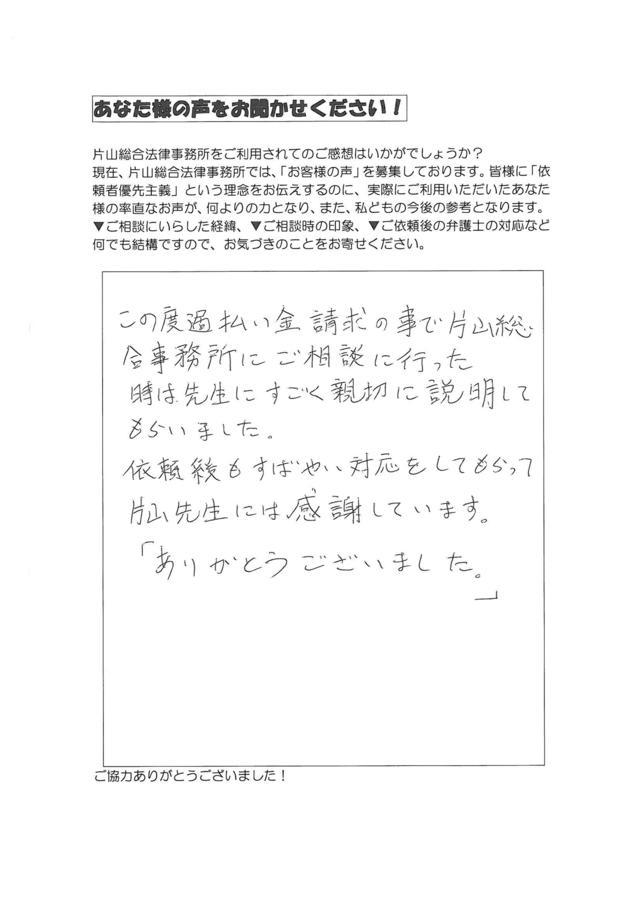 あなた様の声をお聞かせください！
片山総合法律事務所をご利用されてのご感想はいかがでしょうか？
現在、片山総合法律事務所では、「お客様の声」を募集しております。皆様に「依
頼者優先主義」という理念をお伝えするのに、実際にご利用いただいたあなた
様の率直なお声が、何よりの力となり、また、私どもの今後の参考となります。
▼ご相談にいらした経緯、▼ご相談時の印象、▼ご依頼後の弁護士の対応など
何でも結構ですので、お気づきのことをお寄せください。
この度過払い金請求の事で片山総
合事務所にご相談に行った
時は先生にすごく親切に説明して
もらいました。
依頼後もすばやい対応をしてもらって
片山先生には感謝しています。
「ありがとうございました。
」
ご協力ありがとうございました！